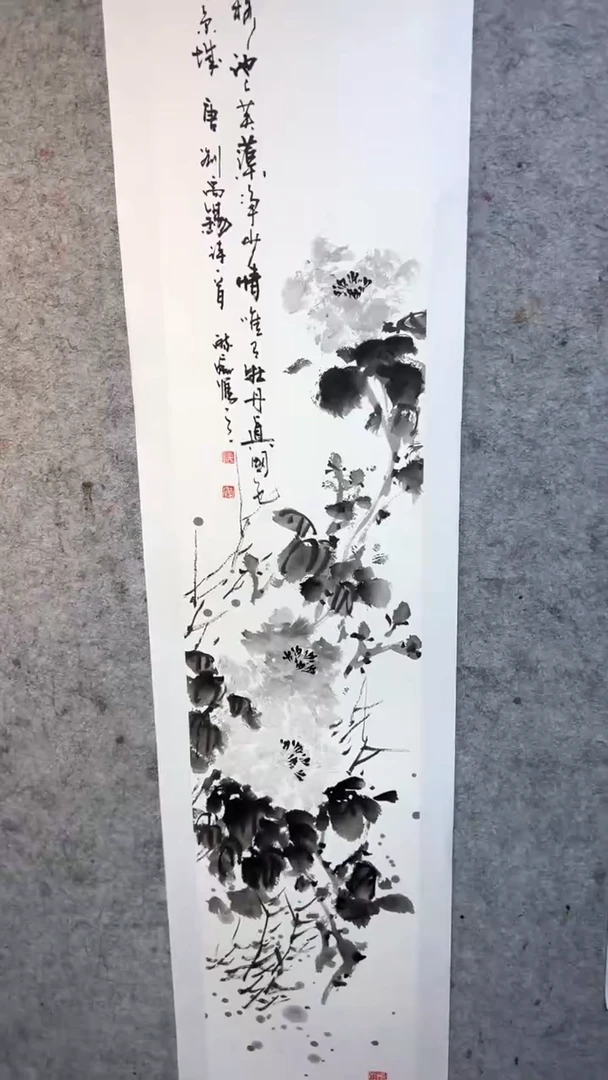 格池上芙蕖净少情唯有牡丹真國色
京城 唐刘禹锡诗一首